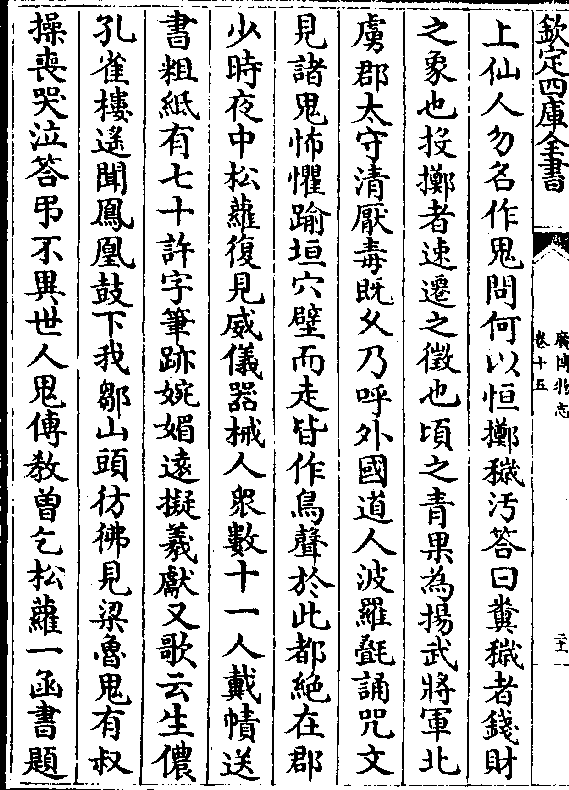 欽定四庫全書
廣博物志
卷十五
上仙人勿名作鬼問何以恒擲穢汚答曰糞穢者錢財
之象也投擲者速遷之徵也頃之青果為揚武將軍北
虜郡太守清厭毒既久乃呼外國道人波羅㲲誦咒文
見諸鬼怖懼踰垣穴壁而走皆作鳥聲於此都絶在郡
少時夜中松蘿復見威儀器械人衆數十一人戴幘送
書粗紙有七十許字筆跡婉媚遠擬羲獻又歌云生儂
孔雀樓遥聞鳳凰鼓下我鄒山頭彷彿見梁魯鬼有叔
操喪哭泣答弔不異世人鬼傳教曽乞松蘿一函書題